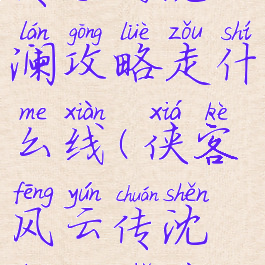 lán gōng lüè zǒu shí
澜攻略走什
me xiàn xiá kè
么线(侠客
fēng yún chuán shěn
风云传沈